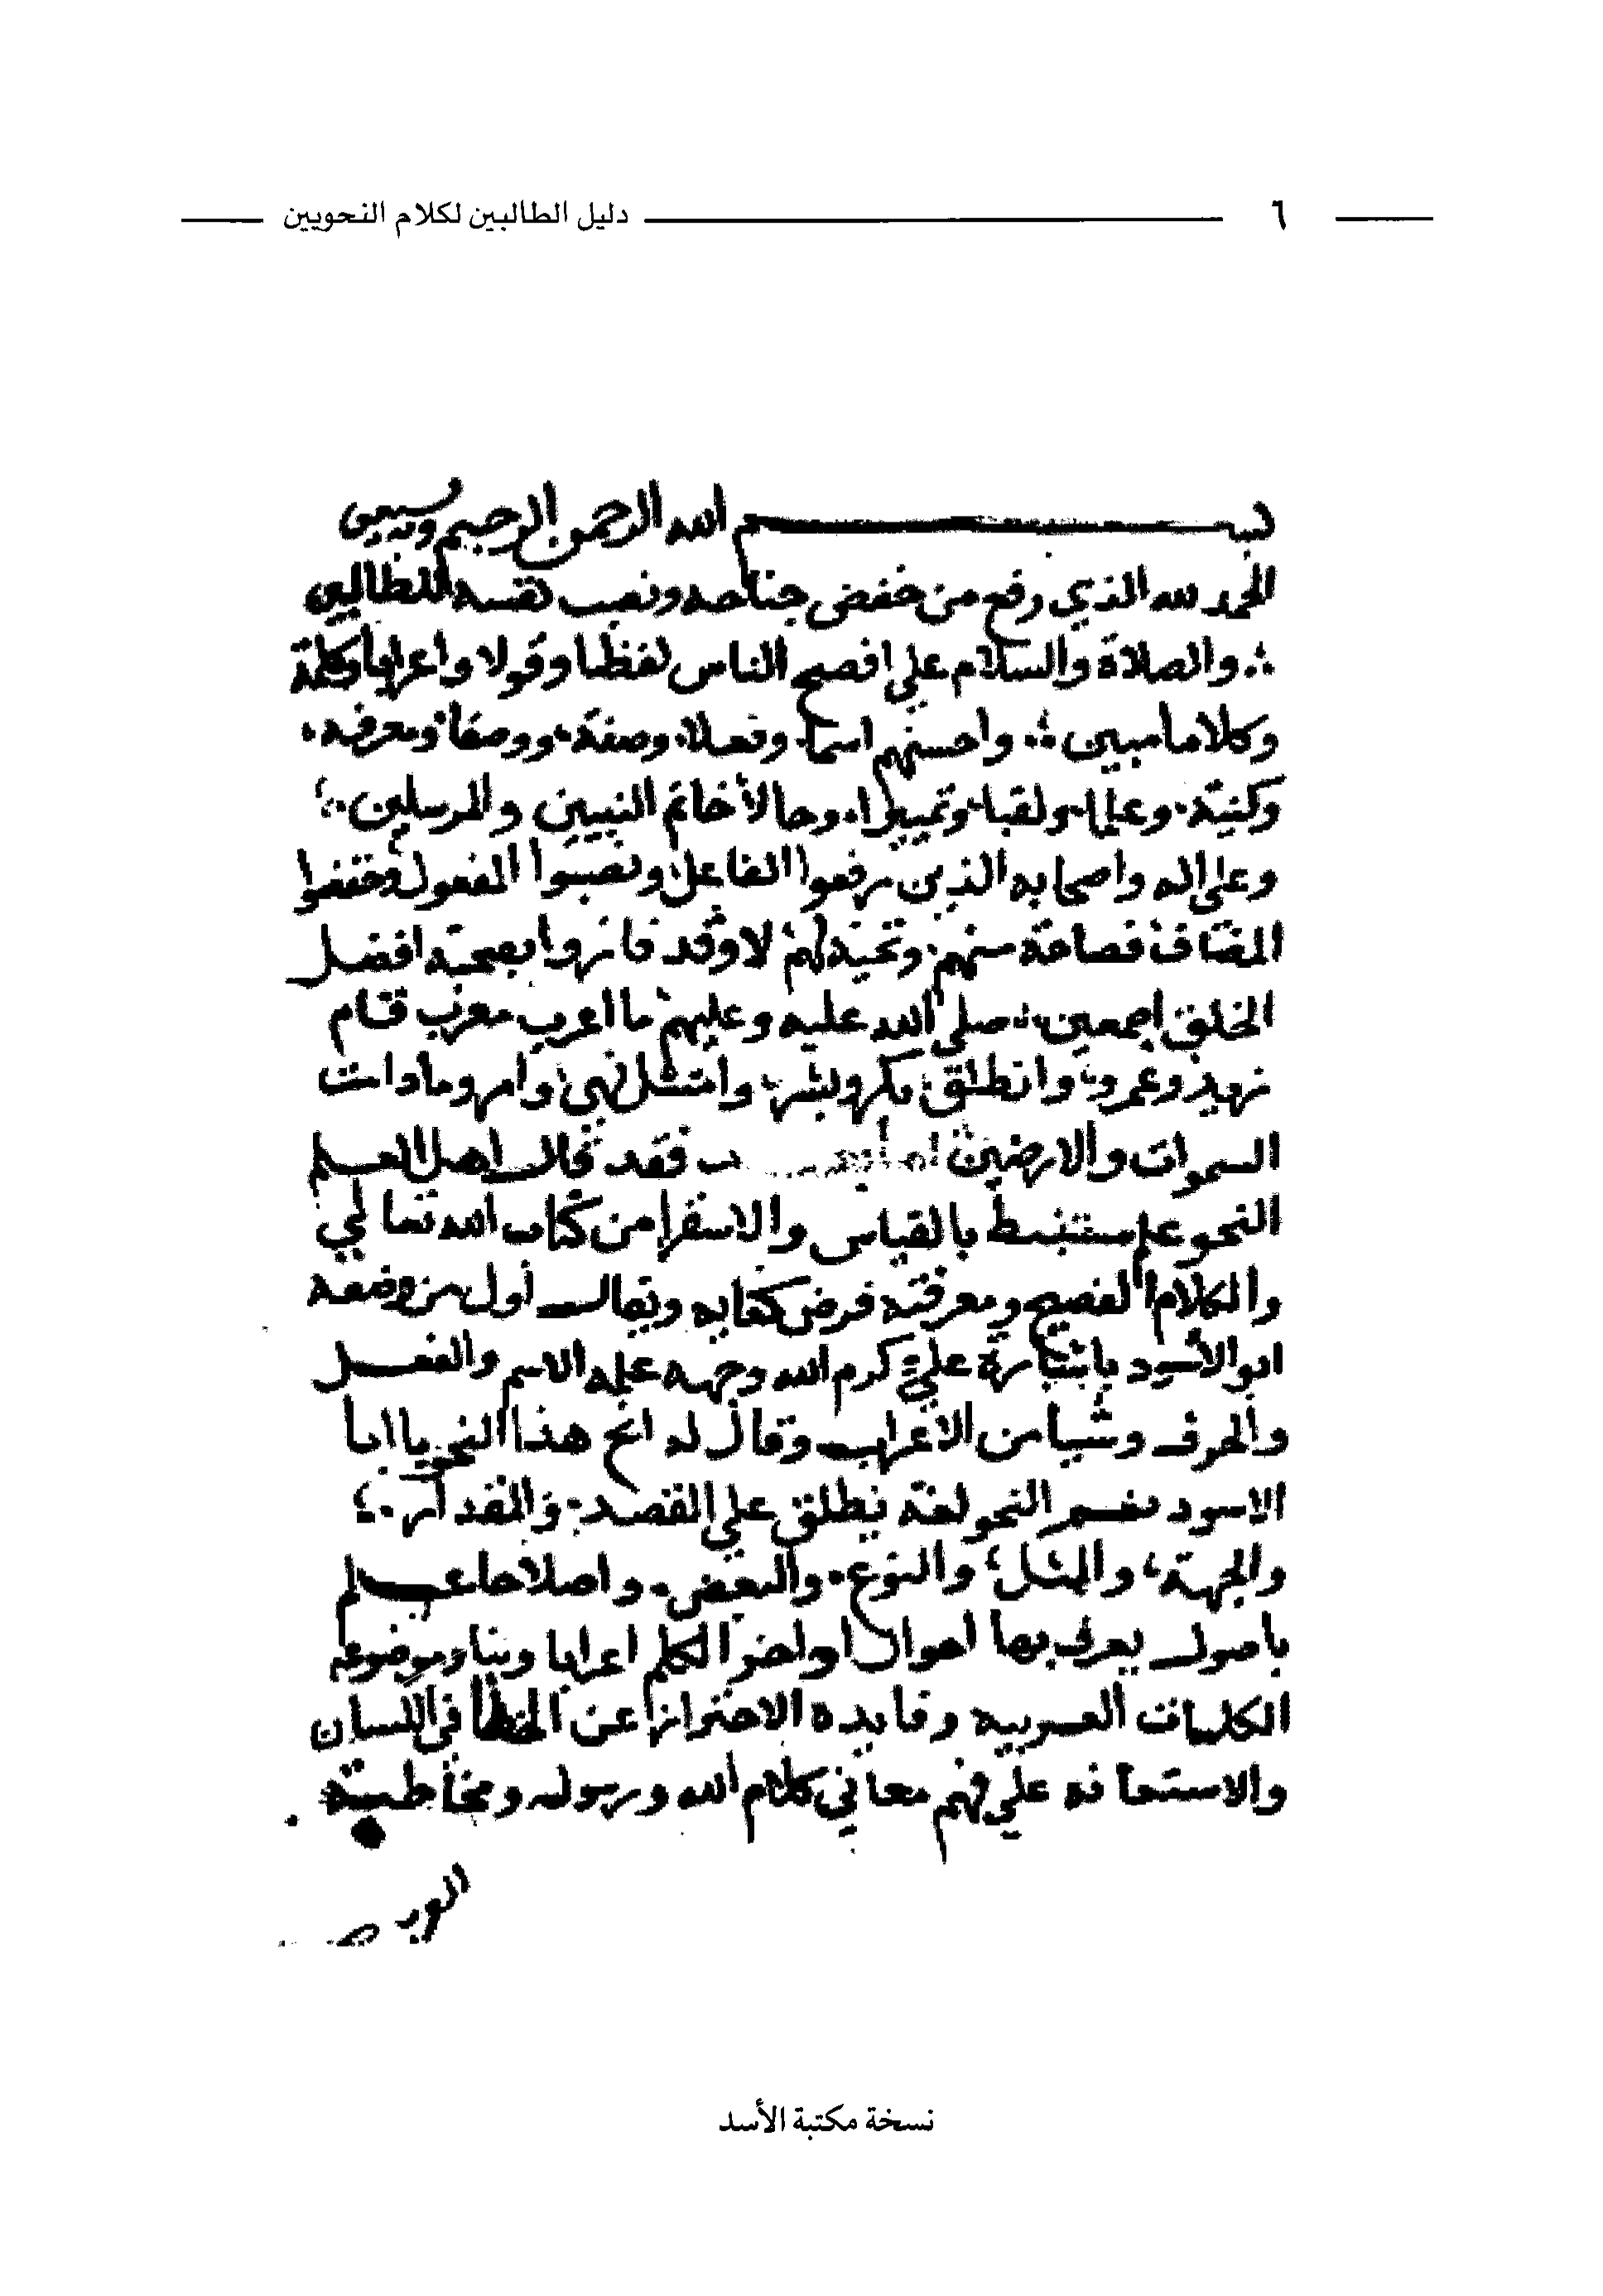 ٦ دليل الطالبين لكلام النحويين
بسم الله الرحمن الرحيم وبه نستعين
الحمد لله الذي رفع من خفض جناحه ونصب نفسه للطالبين
والصلاة والسلام علي افصح الناس لفظا وقولا واعرابا وكلمة
وكلاما مبين واحسنهم اسما وفعلا وصفة ووصفا ومعرفه
وكنية وعلما ولقبا وتمييزا وحالا خاتم النبيين والمرسلين
وعلي اله واصحابه الذين رفعوا الفاعل ونصبوا المفعول وخفضوا
المضاف فصاحة منهم وتحية لهم لا وقد فازوا بصحبة افضل
الخلق اجمعين صلي الله عليه وعليهم ما اعرب معرب قام
زيد وعمرو وانطلق بكر وبشر وامتثل نهي وامر ومادامت
السموات والارضين اما بعد فقد قال اهل العلم
النحو علم مستنبط بالقياس والاستقرا من كتاب الله تعالي
والكلام الفصيح ومعرفته فرض كفايه ويقال أول من وضعه
ابو الأسود باشارة علي كرم الله وجهه علمه الاسم والفعل
والحرف وشيا من الاعراب وقال له انح هذا النحو يا ابا
الاسود نعم النحو لغة يطلق علي القصد والمقدار
والجهة، والمثل، والنوع والبعض واصلاحا علم
باصول يعرف بها احوال اواخر الكلم اعرابا وبنا وموضوعه
الكلمات العربيه وفايده الاحتراز عن الخطأ في اللسان
والاستعانه علي فهم معاني كلام الله ورسوله ومخاطبة
نسخة مكتبة الأسد